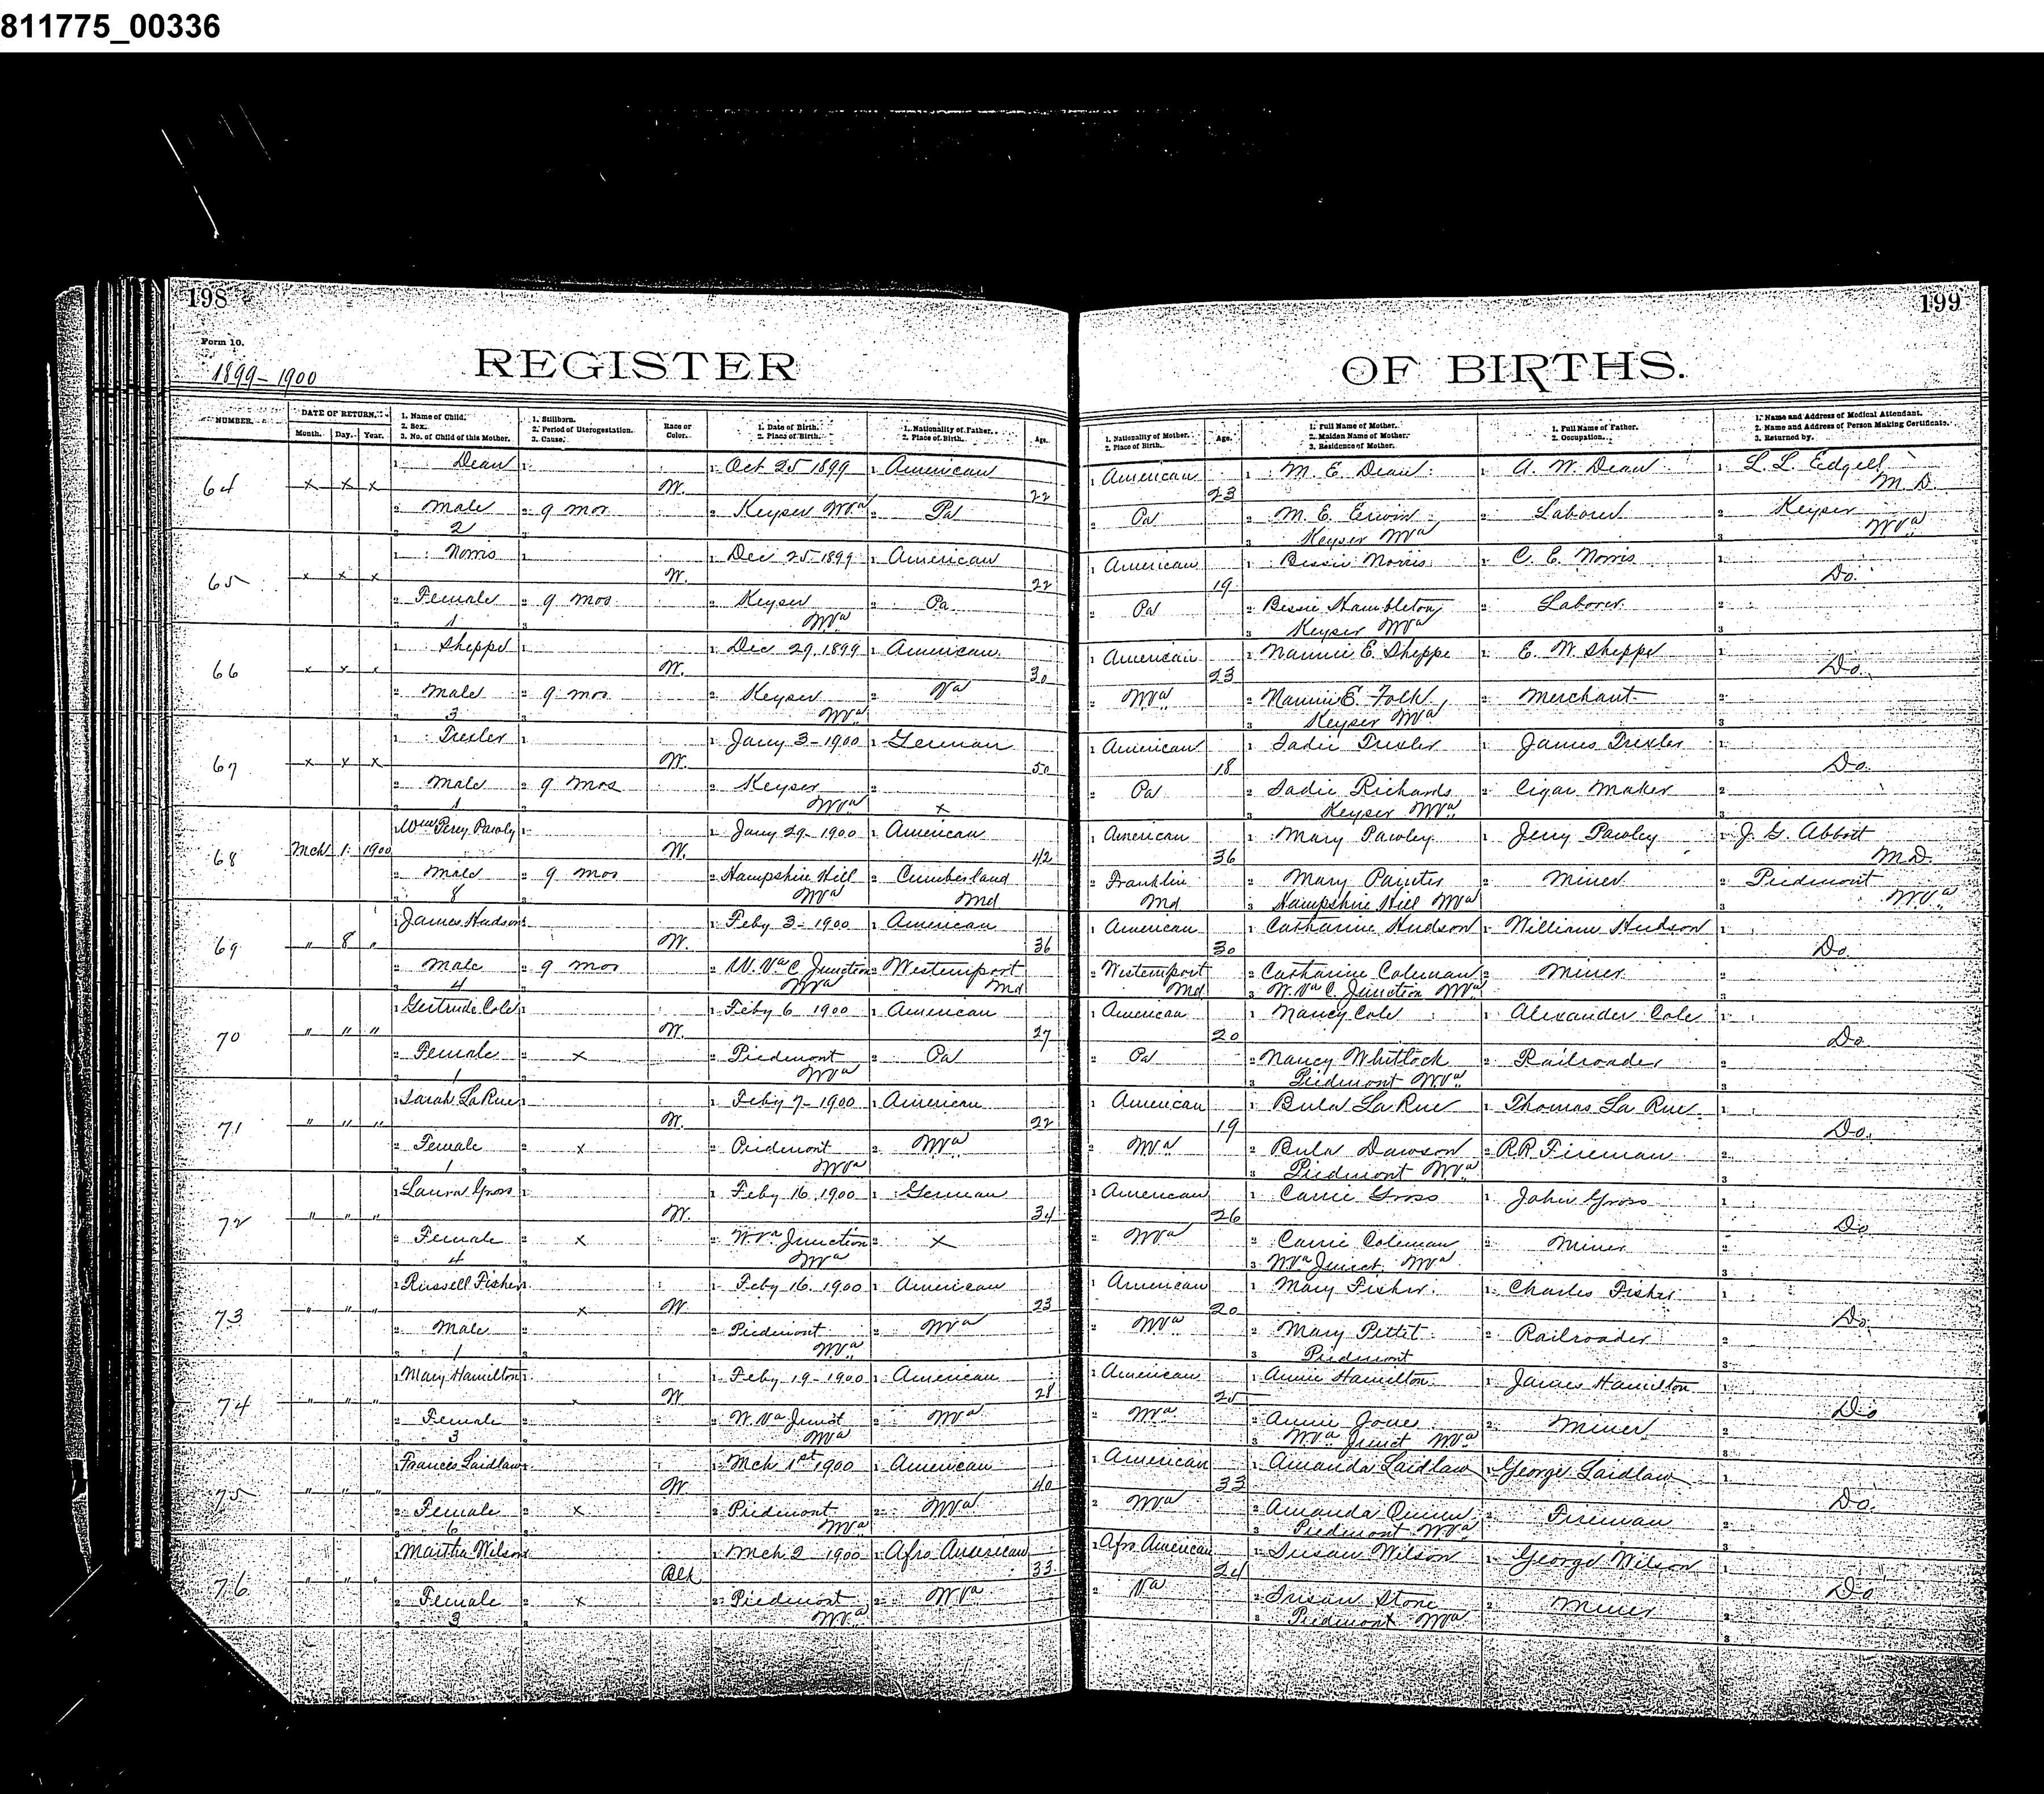 811775_00336
198
199
Form 10.
1899-1900
REGISTER OF BIRTHS.
NUMBER.
DATE OF RETURN.
Month. Day. Year.
1. Name of Child.
2. Sex.
3. No. of Child of this Mother.
1. Stillborn.
2. Period of Uterogestation.
3. Cause.
Race or Color.
1. Date of Birth.
2. Place of Birth.
1. Nationality of Father.
2. Place of Birth.
Age.
1. Nationality of Mother.
2. Place of Birth.
Age.
1. Full Name of Mother.
2. Maiden Name of Mother.
3. Residence of Mother.
1. Full Name of Father.
2. Occupation.
1. Name and Address of Medical Attendant.
2. Name and Address of Person Making Certificate.
3. Returned by.
64 x x x 1 Dean 1 W. 1 Oct 25 1899 1 American 22 1 American 23 1 M. E. Dean 1 A. W. Dean 1 L. L. Edgell M.D.
2 Male 2 9 mos 2 Keyser WVa 2 Pa 2 Pa 2 M. E. Erwin 2 Laborer 2 Keyser WVa
3 2 3 Keyser WVa
65 x x x 1 Norris 1 W. 1 Dec 25 1899 1 American 22 1 American 19 1 Bessie Norris 1 C. E. Norris 1 Do.
2 Female 2 9 mos 2 Keyser WVa 2 Pa 2 Pa 2 Bessie Hambleton 2 Laborer 2
3 1 3 Keyser WVa 3
66 x x x 1 Sheppe 1 W. 1 Dec 29, 1899 1 American 30 1 American 23 1 Nannie E. Sheppe 1 E. W. Sheppe 1 Do.
2 Male 2 9 mos 2 Keyser WVa 2 Va 2 WVa 2 Nannie E. Folk 2 Merchant 2
3 3 3 Keyser WVa 3
67 x x x 1 Trexler 1 W. 1 Jany 3-1900 1 German 50 1 American 18 1 Sadie Trexler 1 James Trexler 1 Do.
2 Male 2 9 mos 2 Keyser WVa 2 x 2 Pa 2 Sadie Richards 2 Cigar Maker 2
3 1 3 Keyser WVa 3
68 Mch 1 1900 1 Wm Percy Pawley 1 W. 1 Jany 29-1900 1 American 42 1 American 36 1 Mary Pawley 1 Jerry Pawley 1 J. G. Abbott M.D.
2 Male 2 9 mos 2 Hampshire Hill WVa 2 Cumberland Md 2 Franklin Md 2 Mary Painter 2 Miner 2 Piedmont WVa
3 8 3 Hampshire Hill WVa 3
69 " 8 " 1 James Hudson 1 W. 1 Feby 3-1900 1 American 36 1 American 30 1 Catharine Hudson 1 William Hudson 1 Do.
2 Male 2 9 mos 2 W. Va C Junction WVa 2 Westernport Md 2 Westernport Md 2 Catharine Coleman 2 Miner 2
3 4 3 W. Va C. Junction WVa 3
70 " " " 1 Gertrude Cole 1 W. 1 Feby 6 1900 1 American 27 1 American 20 1 Nancy Cole 1 Alexander Cole 1 Do
2 Female 2 x 2 Piedmont WVa 2 Pa 2 Pa 2 Nancy Whittock 2 Railroader 2
3 1 3 Piedmont WVa 3
71 " " " 1 Sarah La Rue 1 W. 1 Feby 7-1900 1 American 22 1 American 19 1 Bula La Rue 1 Thomas La Rue 1 Do.
2 Female 2 x 2 Piedmont WVa 2 WVa 2 WVa 2 Bula Dawson 2 RR Fireman 2
3 1 3 Piedmont WVa 3
72 " " " 1 Laura Gross 1 W. 1 Feby 16, 1900 1 German 34 1 American 26 1 Carrie Gross 1 John Gross 1 Do
2 Female 2 x 2 W Va Junction WVa 2 x 2 WVa 2 Carrie Coleman 2 Miner 2
3 4 3 WVa Junct WVa 3
73 " " " 1 Russell Fisher 1 x W 1 Feby 16, 1900 1 American 23 1 American 20 1 Mary Fisher 1 Charles Fisher 1 Do.
2 Male 2 2 Piedmont WVa 2 WVa 2 WVa 2 Mary Pettit 2 Railroader 2
3 1 3 Piedmont 3
74 " " " 1 Mary Hamilton 1 x W 1 Feby 19-1900 1 American 28 1 American 25 1 Annie Hamilton 1 James Hamilton 1 Do
2 Female 2 2 W. Va Junct WVa 2 WVa 2 WVa 2 Annie Jones 2 Miner 2
3 3 3 WVa Junct WVa 3
75 " " " 1 Francis Laidlaw 1 W 1 Mch 1st 1900 1 American 40 1 American 33 1 Amanda Laidlaw 1 George Laidlaw 1 Do.
2 Female 2 x 2 Piedmont WVa 2 WVa 2 WVa 2 Amanda Quinn 2 Fireman 2
3 6 3 Piedmont WVa 3
76 " " " 1 Martha Wilson 1 Blk 1 Mch 2 1900 1 Afro American 33 1 Afro American 24 1 Susan Wilson 1 George Wilson 1 Do
2 Female 2 x 2 Piedmont WVa 2 WVa 2 Va 2 Susan Stone 2 Miner 2
3 3 3 Piedmont WVa 3